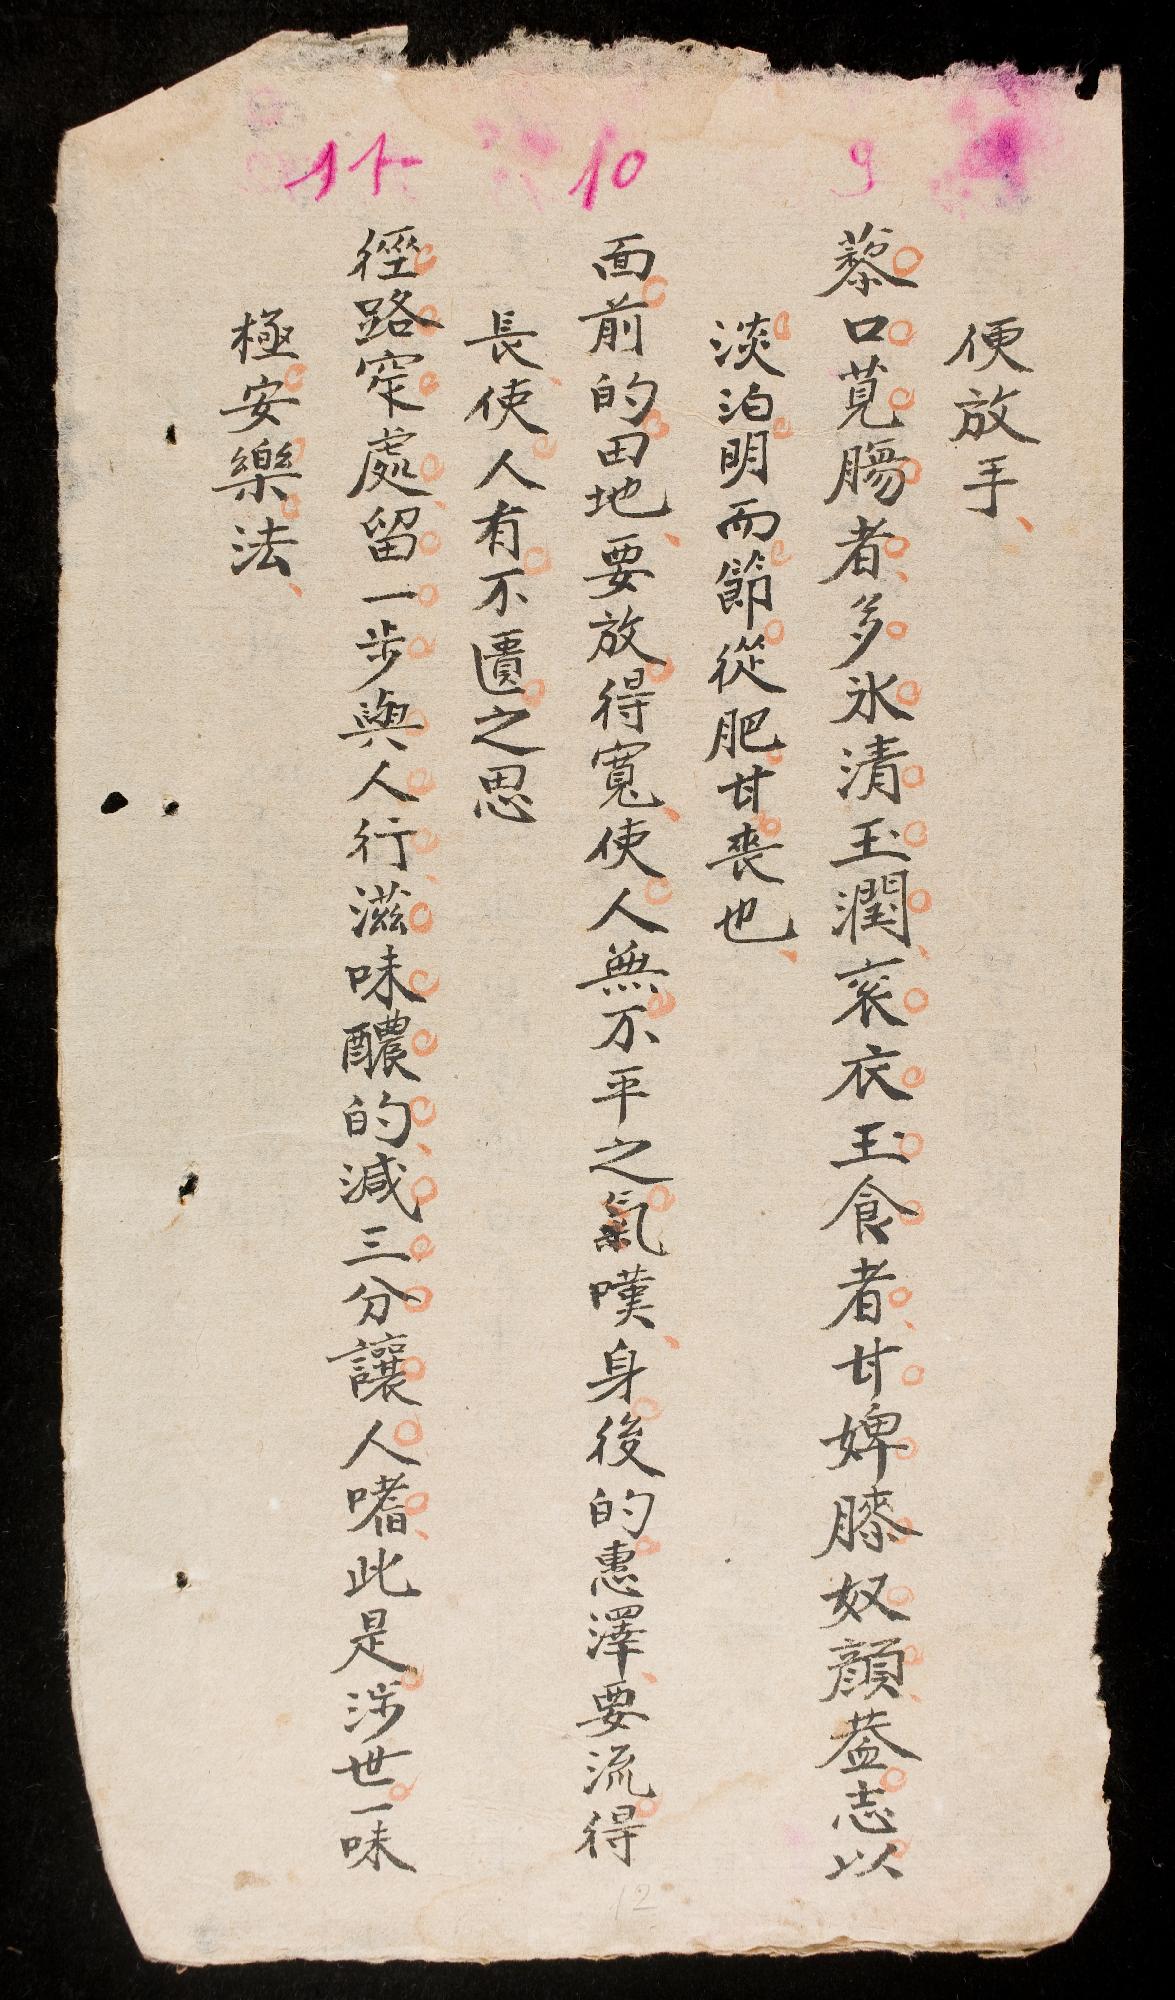 便放手、
9
藜口莧膓者、多氷清玉潤、衮衣玉食者、甘婢膝奴顔、葢志以
淡泊明而節從肥甘喪也、
10
面前的田地、要放得寬、使人無不平之氣嘆、身後的惠澤、要流得
長、使人有不匱之思
11
徑路窄處、留一步與人行、滋味醲的、減三分讓人嗜、此是涉世一味
極安樂法、
12